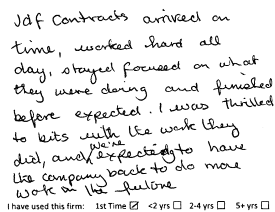 Jdf Contracts arrived on
time, worked hard all
day, stayed focused on what
they were doing and finished
before expected. I was thrilled
to bits with the work they
did, and we're expecting to have
the company back to do more
work in the future
I have used this firm: 1st Time ☑ <2 yrs ☐ 2-4 yrs ☐ 5+ yrs ☐